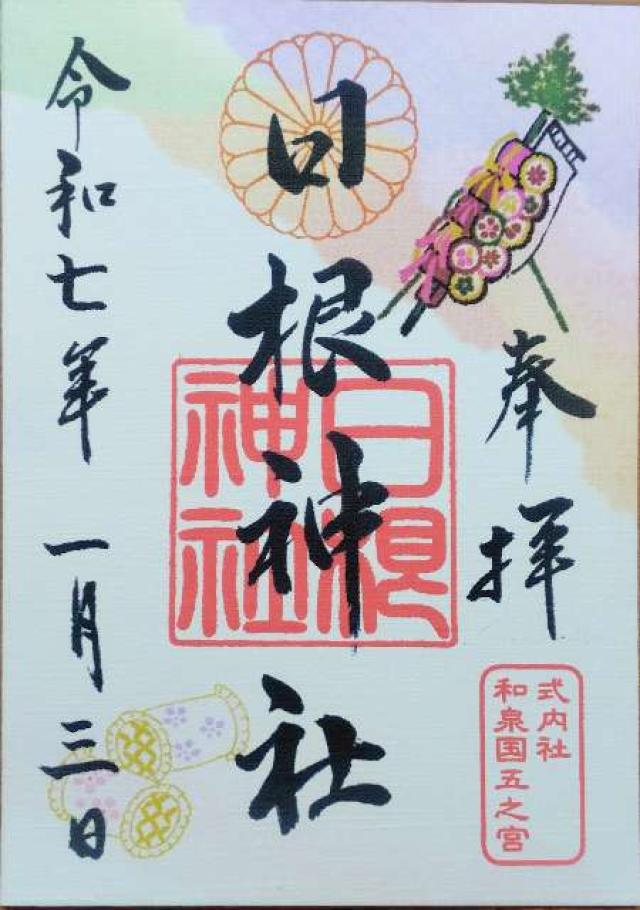 奉拝
式内社
和泉国五之宮
日根神社
日根神社
令和七年 一月三日